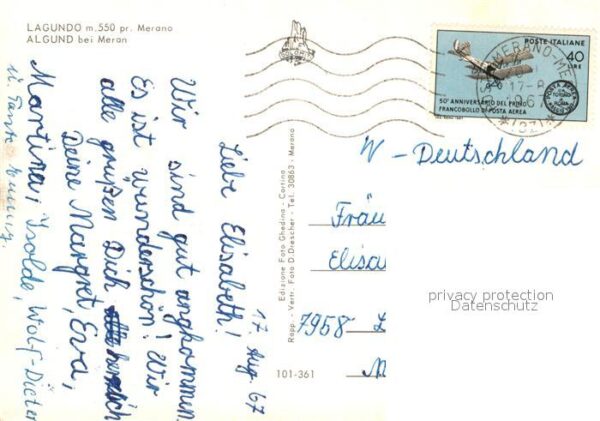 LAGUNDO m. 550 pr. Merano
ALGUND bei Meran
17. Aug. 67
Liebe Elisabeth!
Wir sind gut angkommen.
Es ist wunderschön! Wir
alle grüßen Dich herzlich
Deine Margret, Eva,
Martina, Isolde, Wolf-Dieter
u. Tante
Edizione Foto Ghedina - Cortina
Rapp. - Vertr. Foto D. Drescher - Tel. 30863 - Merano
101-361
POSTE ITALIANE
40
LIRE
50° ANNIVERSARIO DEL PRIMO
FRANCOBOLLO DI POSTA AEREA
MERANO-ME
17-8
1967
W-Deutschland
Fräu
Elisa
7958 L
privacy protection
Datenschutz